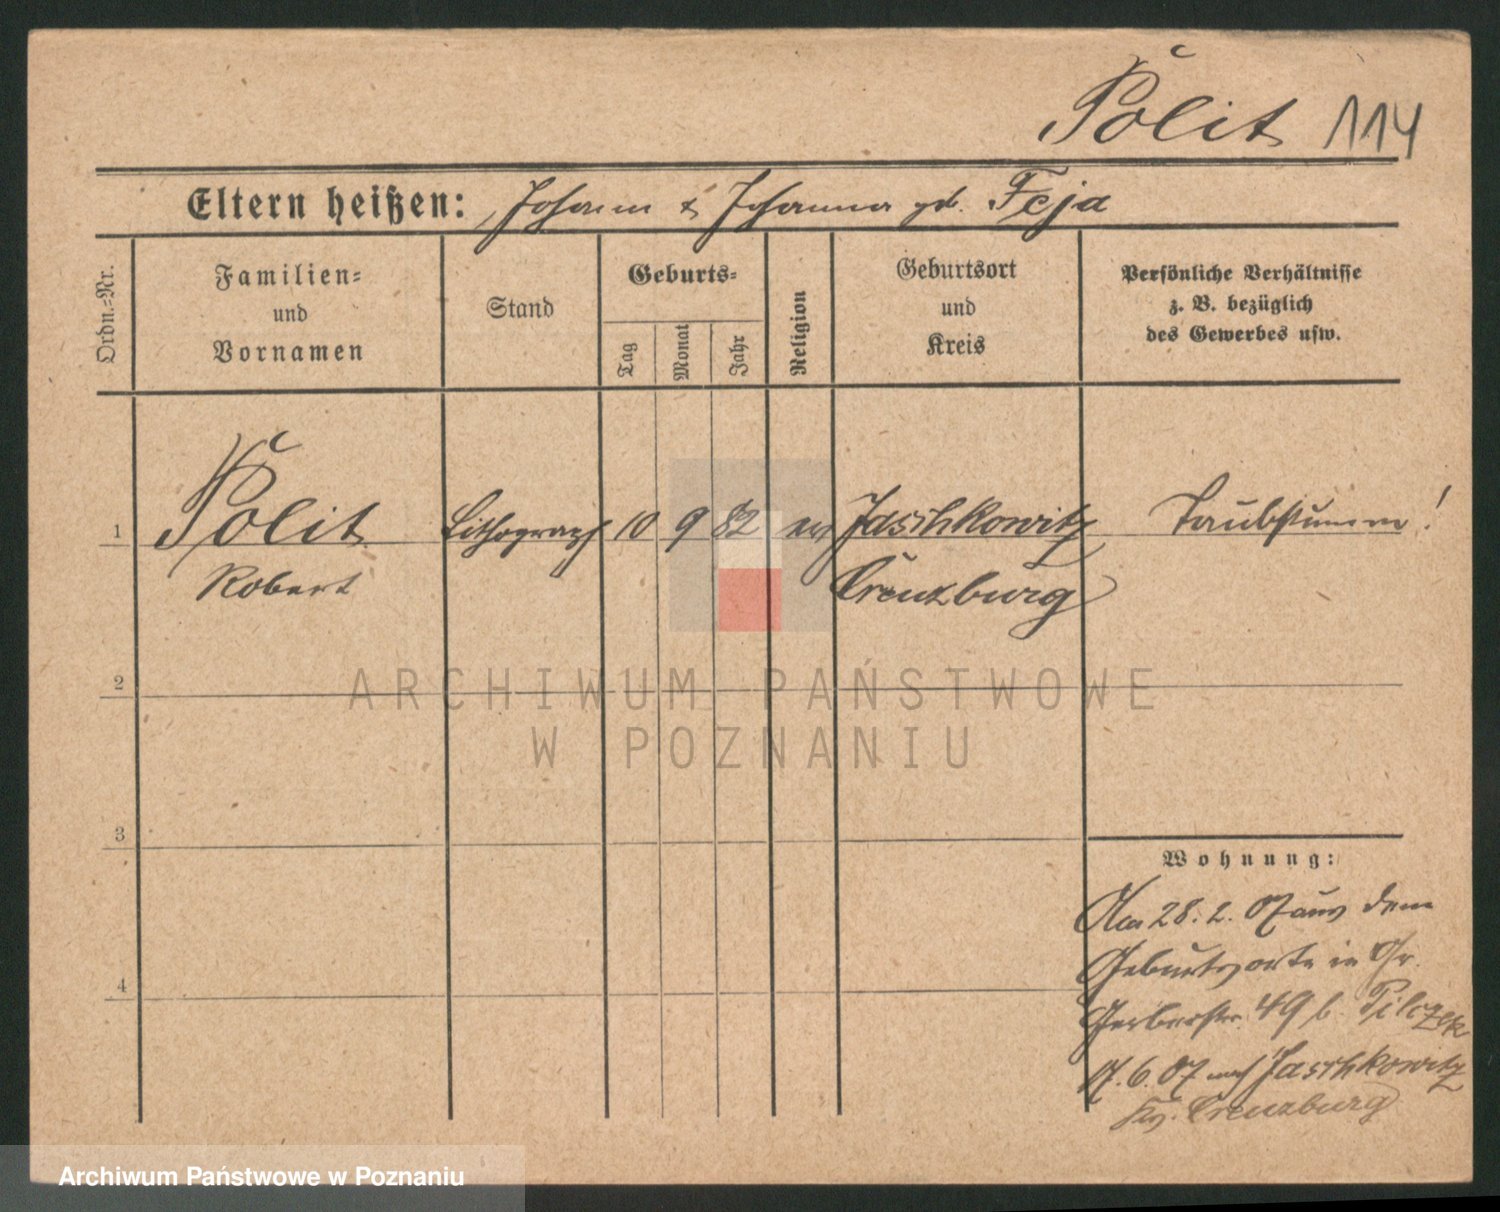 Polit 114
Eltern heißen: Johann & Johanna geb. Feja
Ordn.-Nr.
Familien-
und
Vornamen
Stand
Geburts-
Tag
Monat
Jahr
Religion
Geburtsort
und
Kreis
Persönliche Verhältnisse
z. B. bezüglich
des Gewerbes usw.
1 Polit Lithograph 10 9 82 ev Jaschkowitz Taubstumm!
Robert Creuzburg
2
ARCHIWUM PAŃSTWOWE
W POZNANIU
3
Wohnung:
Am 28. 2. 07 aus dem
Geburtsorte in Gr.
4
Gerberstr. 49 b. Pilczek
17. 6. 07 nach Jaschkowitz
Kr. Creuzburg
Archiwum Państwowe w Poznaniu